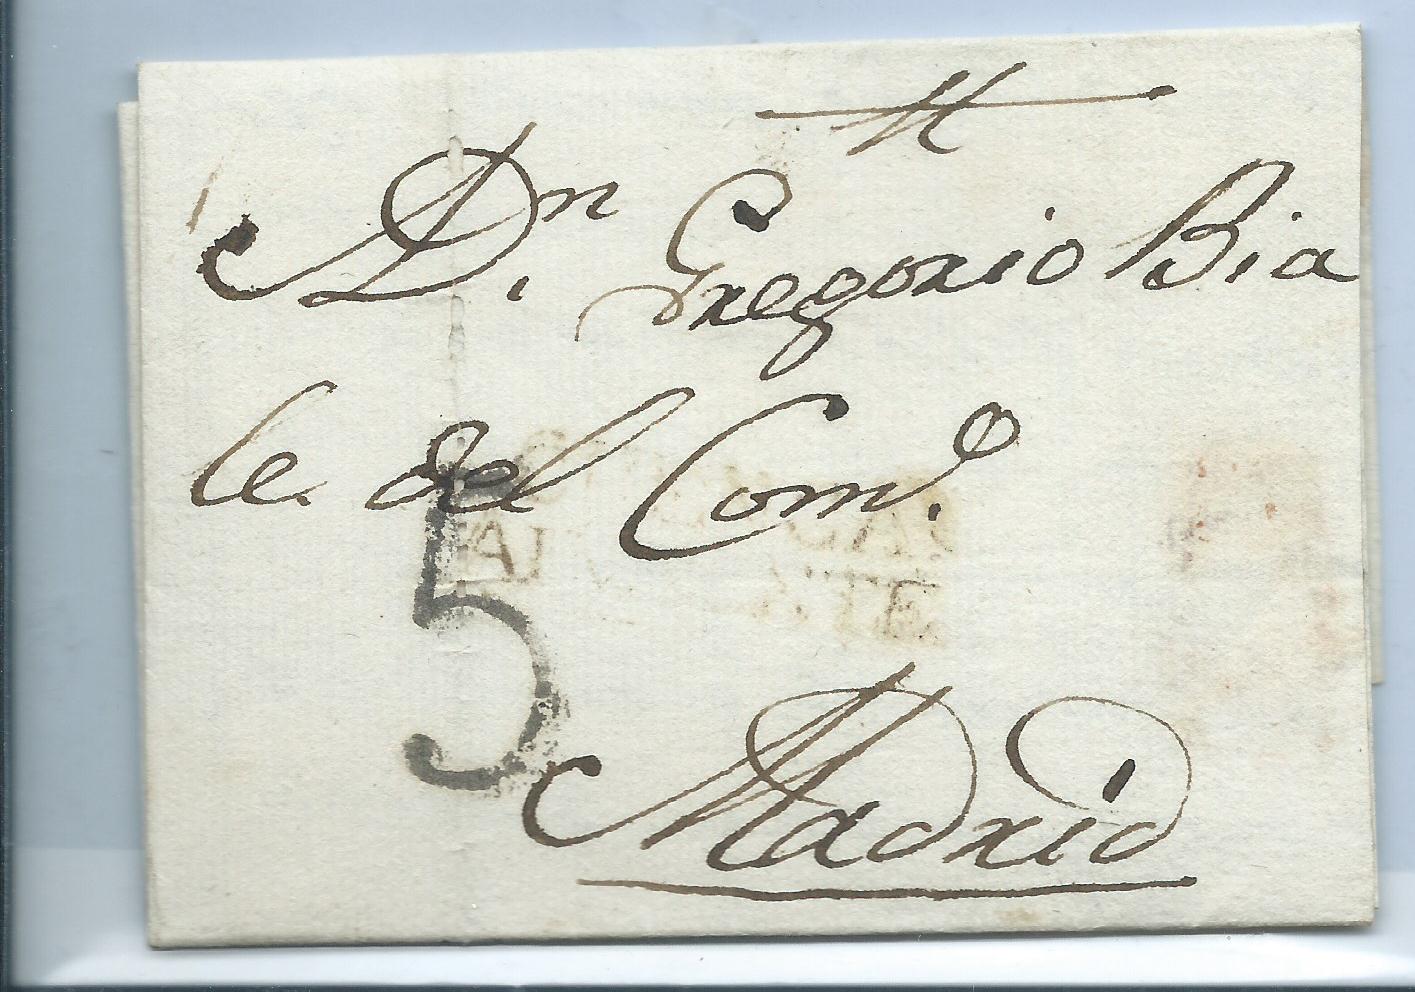 A Dn. Gregorio Bia
le. del Com.o
5
Madrid